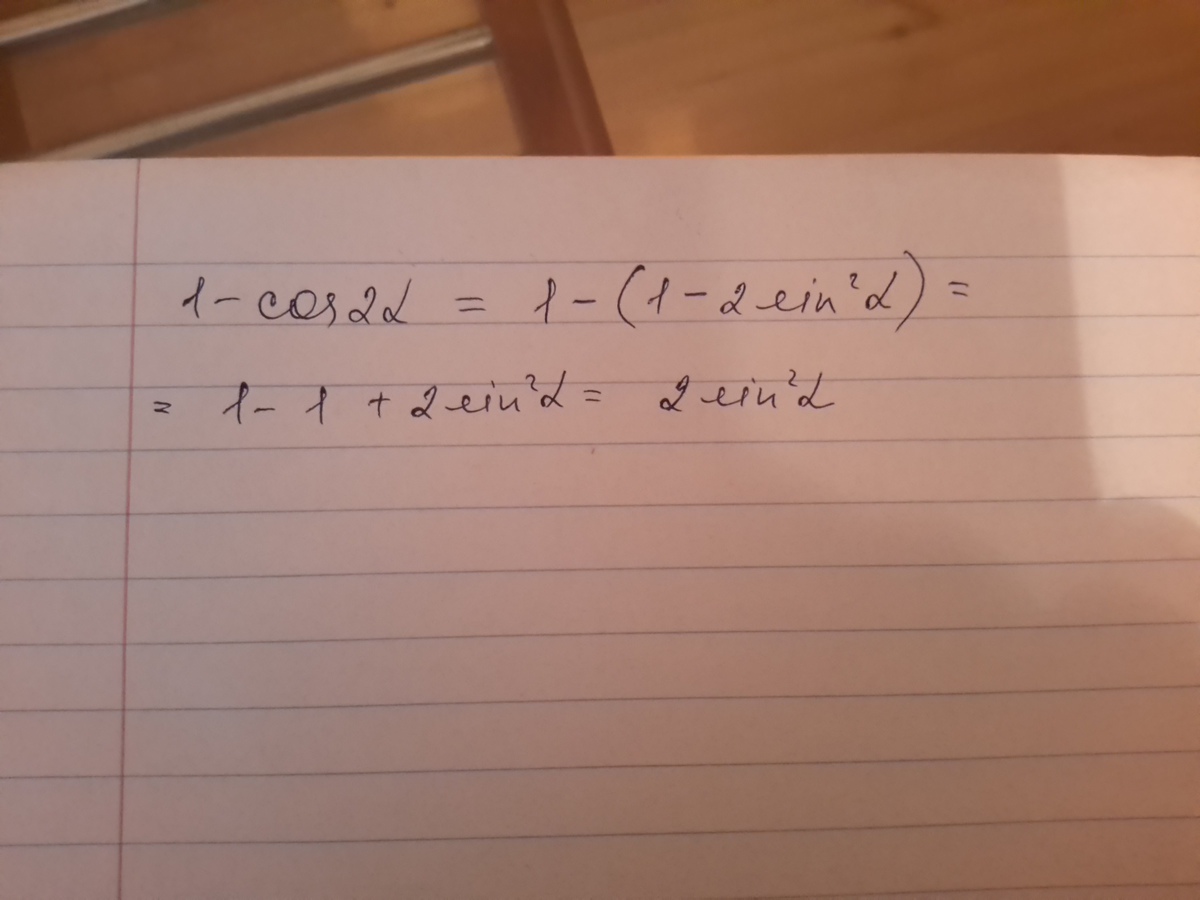 1 - cos2α = 1 - (1 - 2 sin²α) =
= 1 - 1 + 2 sin²α = 2 sin²α